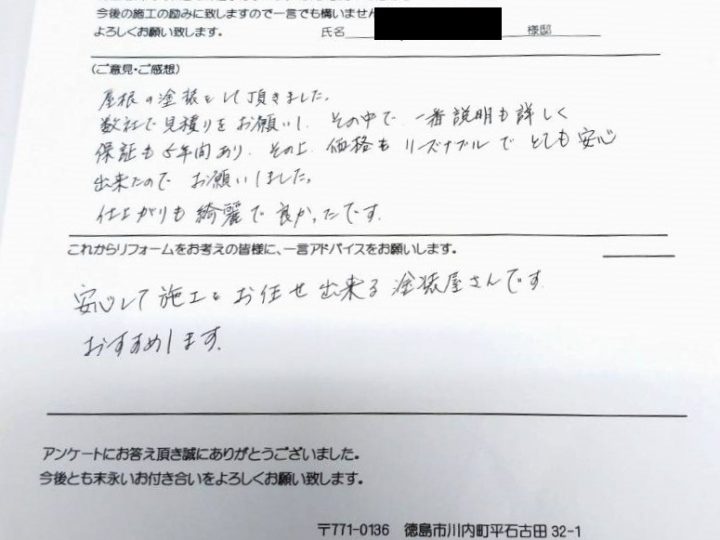 今後の施工の励みに致しますので一言でも構いません
よろしくお願い致します。 氏名 様邸
(ご意見・ご感想)
屋根の塗装をして頂きました。
数社で見積りをお願いし、その中で、一番説明も詳しく
保証も5年間あり、その上、価格も リーズナブルで とても安心
出来たので お願いしました。
仕上がりも綺麗で良かったです。
これからリフォームをお考えの皆様に、一言アドバイスをお願いします。
安心して施工をお任せ出来る塗装屋さんです。
おすすめします。
アンケートにお答え頂き誠にありがとうございました。
今後とも末永いお付き合いをよろしくお願い致します。
〒771-0136 徳島市川内町平石古田 32-1